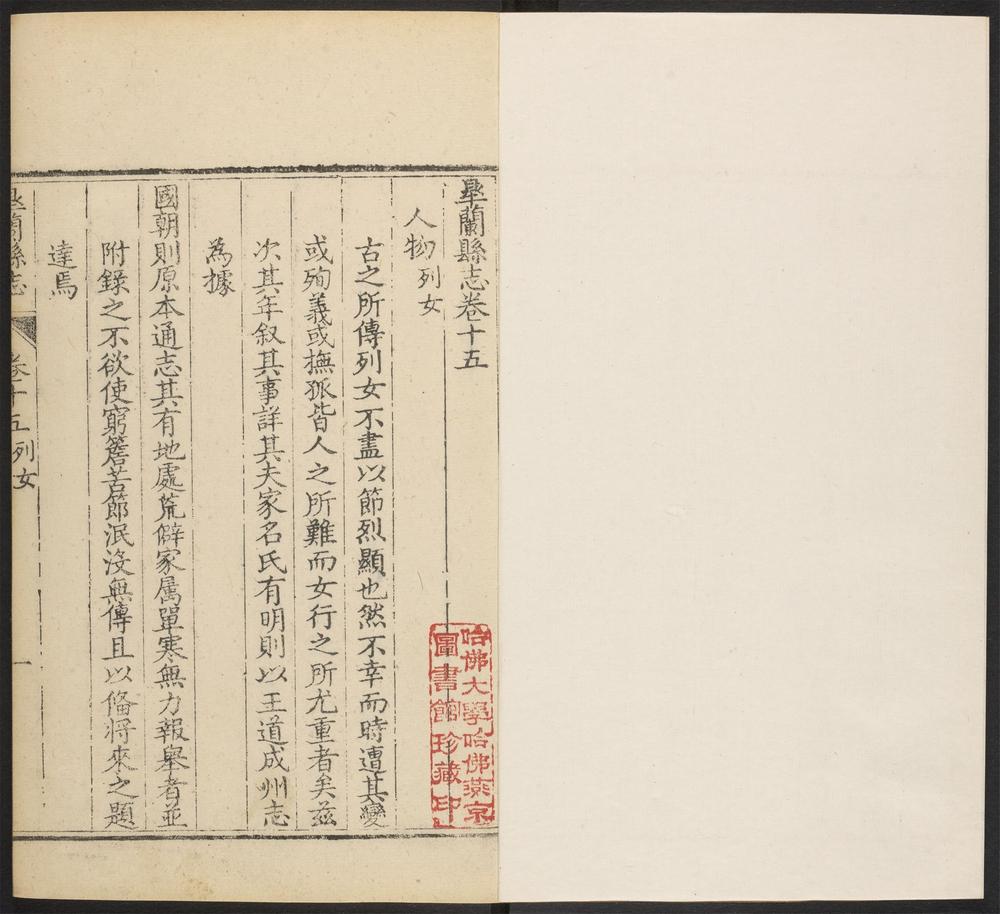 臯蘭縣志卷十五
人物列女
古之所傳列女不盡以節烈顯也然不幸而時遭其變
或殉義或撫孤皆人之所難而女行之所尤重者矣茲
次其年叙其事詳其夫家名氏有明則以王道成州志
為據
國朝則原本通志其有地處荒僻家属單寒無力報舉者並
附錄之不欲使窮簷苦節泯沒無傳且以俻將來之題
達焉
臯蘭縣志 卷十五列女 一
哈佛大學哈佛燕京
圖書館珍藏印